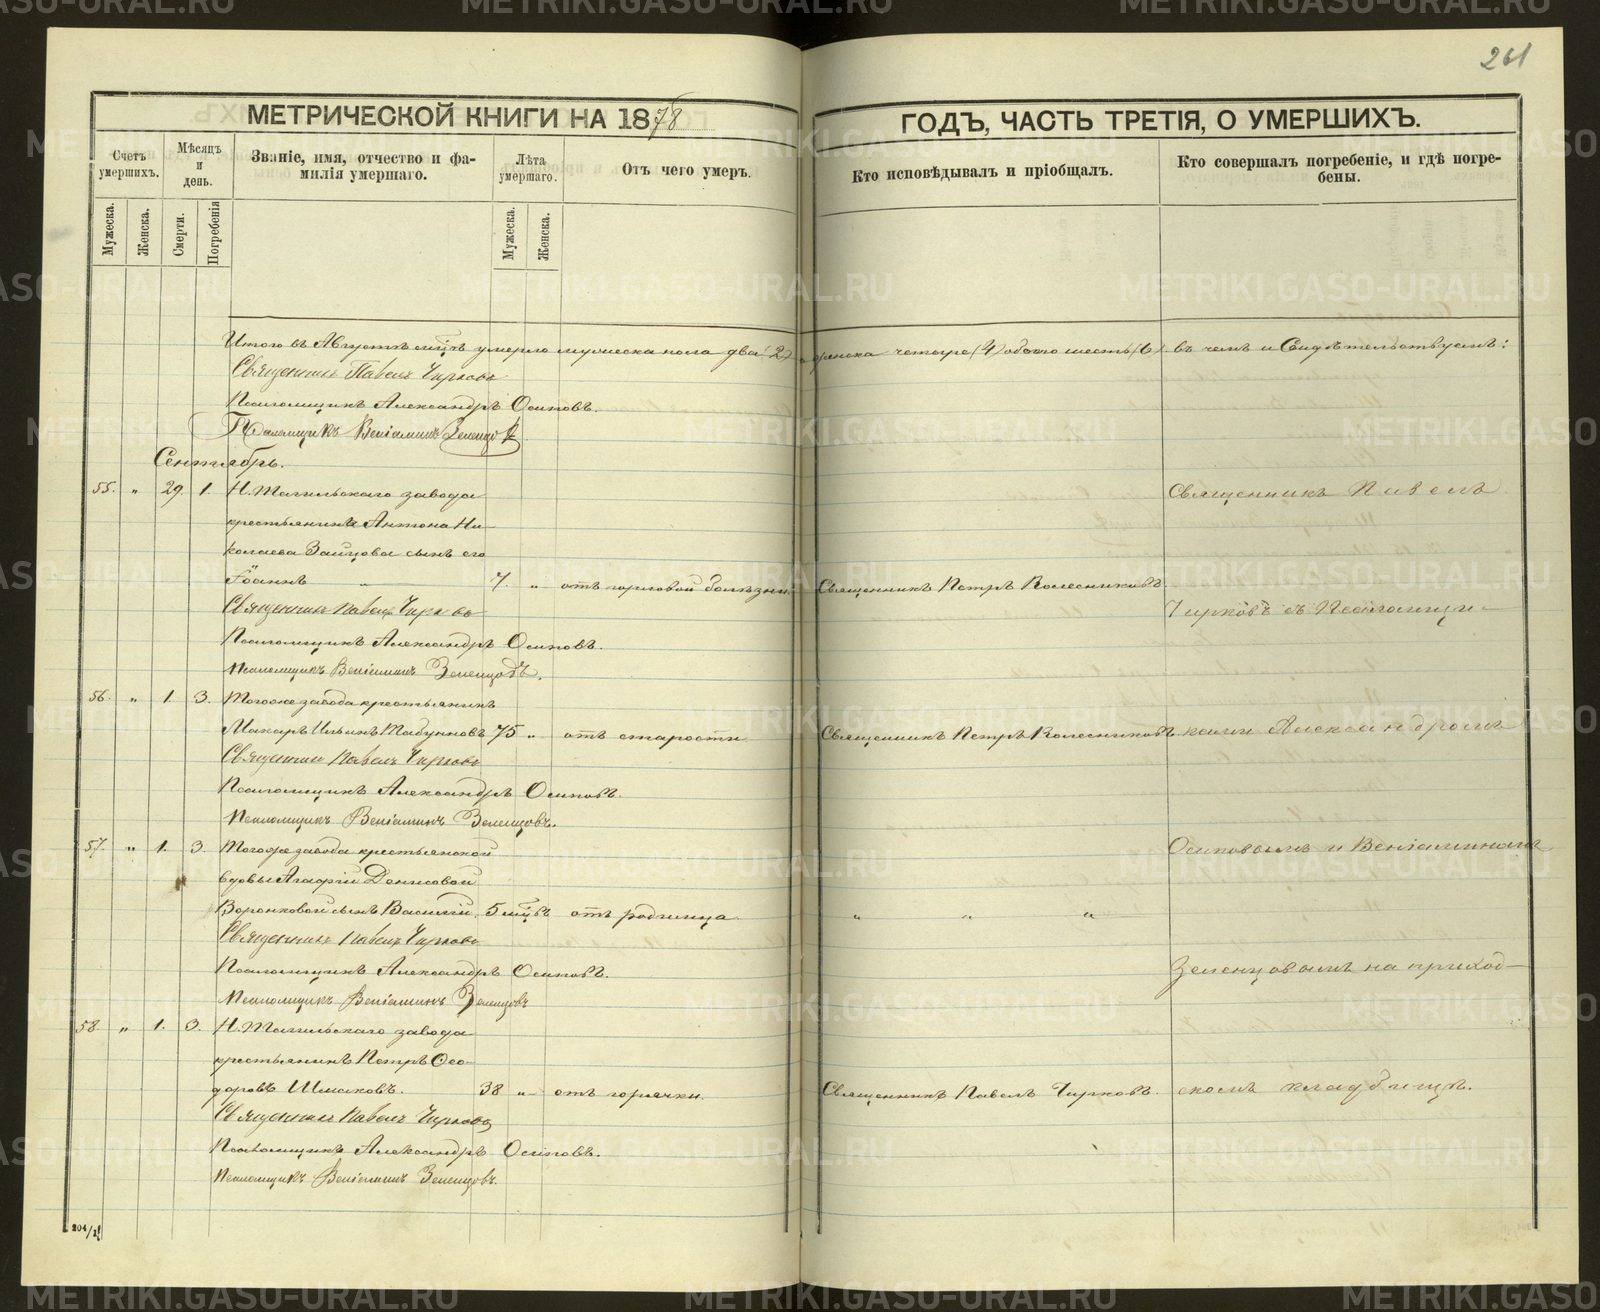 261
МЕТРИЧЕСКОЙ КНИГИ НА 1878
ГОДЪ, ЧАСТЬ ТРЕТІЯ, О УМЕРШИХЪ.
Счетъ умершихъ.
Мѣсяцъ и день.
Званіе, имя, отчество и фа-
милія умершаго.
Лѣта умершаго.
Отъ чего умеръ.
Кто исповѣдывалъ и пріобщалъ.
Кто совершалъ погребеніе, и гдѣ погре-
бены.
Мужеска.
Женска.
Смерти.
Погребенія
Мужеска.
Женска.
Итого въ Августѣ мцѣ умерло мужеска пола два (2) женска четыре (4) обоего шесть (6) въ чемъ и Свидѣтельствуемъ:
Священникъ Павелъ Чирковъ
Псаломщикъ Александръ Осиповъ.
Псаломщикъ Веніаминъ Зеленцовъ
Сентябрь.
55. " 29. 1. Н. Тагильскаго завода Священникъ Павелъ
крестьянина Антона Ни-
колаева Зайцова сынъ его
Іоаннъ " 7. " отъ горловой болѣзни Священникъ Петръ Колесниковъ.
Священникъ Павелъ Чирковъ Чирковъ съ Псаломщи-
Псаломщикъ Александръ Осиповъ.
Псаломщикъ Веніаминъ Зеленцовъ.
56. " 1. 3. Тогоже завода крестьянинъ
Макаръ Ильинъ Табунновъ 75 " отъ старости Священникъ Петръ Колесниковъ. ками Александромъ
Священникъ Павелъ Чирковъ
Псаломщикъ Александръ Осиповъ.
Псаломщикъ Веніаминъ Зеленцовъ.
57. " 1. 3. Тогоже завода крестьянской Осиповымъ и Веніаминомъ
вдовы Агафіи Денисовой
Воронковой сынъ Василій. 5 мцвъ отъ родимца " " "
Священникъ Павелъ Чирковъ
Псаломщикъ Александръ Осиповъ. Зеленцовымъ на приход-
Псаломщикъ Веніаминъ Зеленцовъ
58. " 1. 3. Н. Тагильскаго завода
крестьянинъ Петръ Ѳео-
доровъ Шмаковъ. 38 " отъ горячки. Священникъ Павелъ Чирковъ. скомъ кладбищѣ.
Священникъ Павелъ Чирковъ
Псаломщикъ Александръ Осиповъ.
Псаломщикъ Веніаминъ Зеленцовъ.
204/1
METRIKI.GASO-URAL.RU